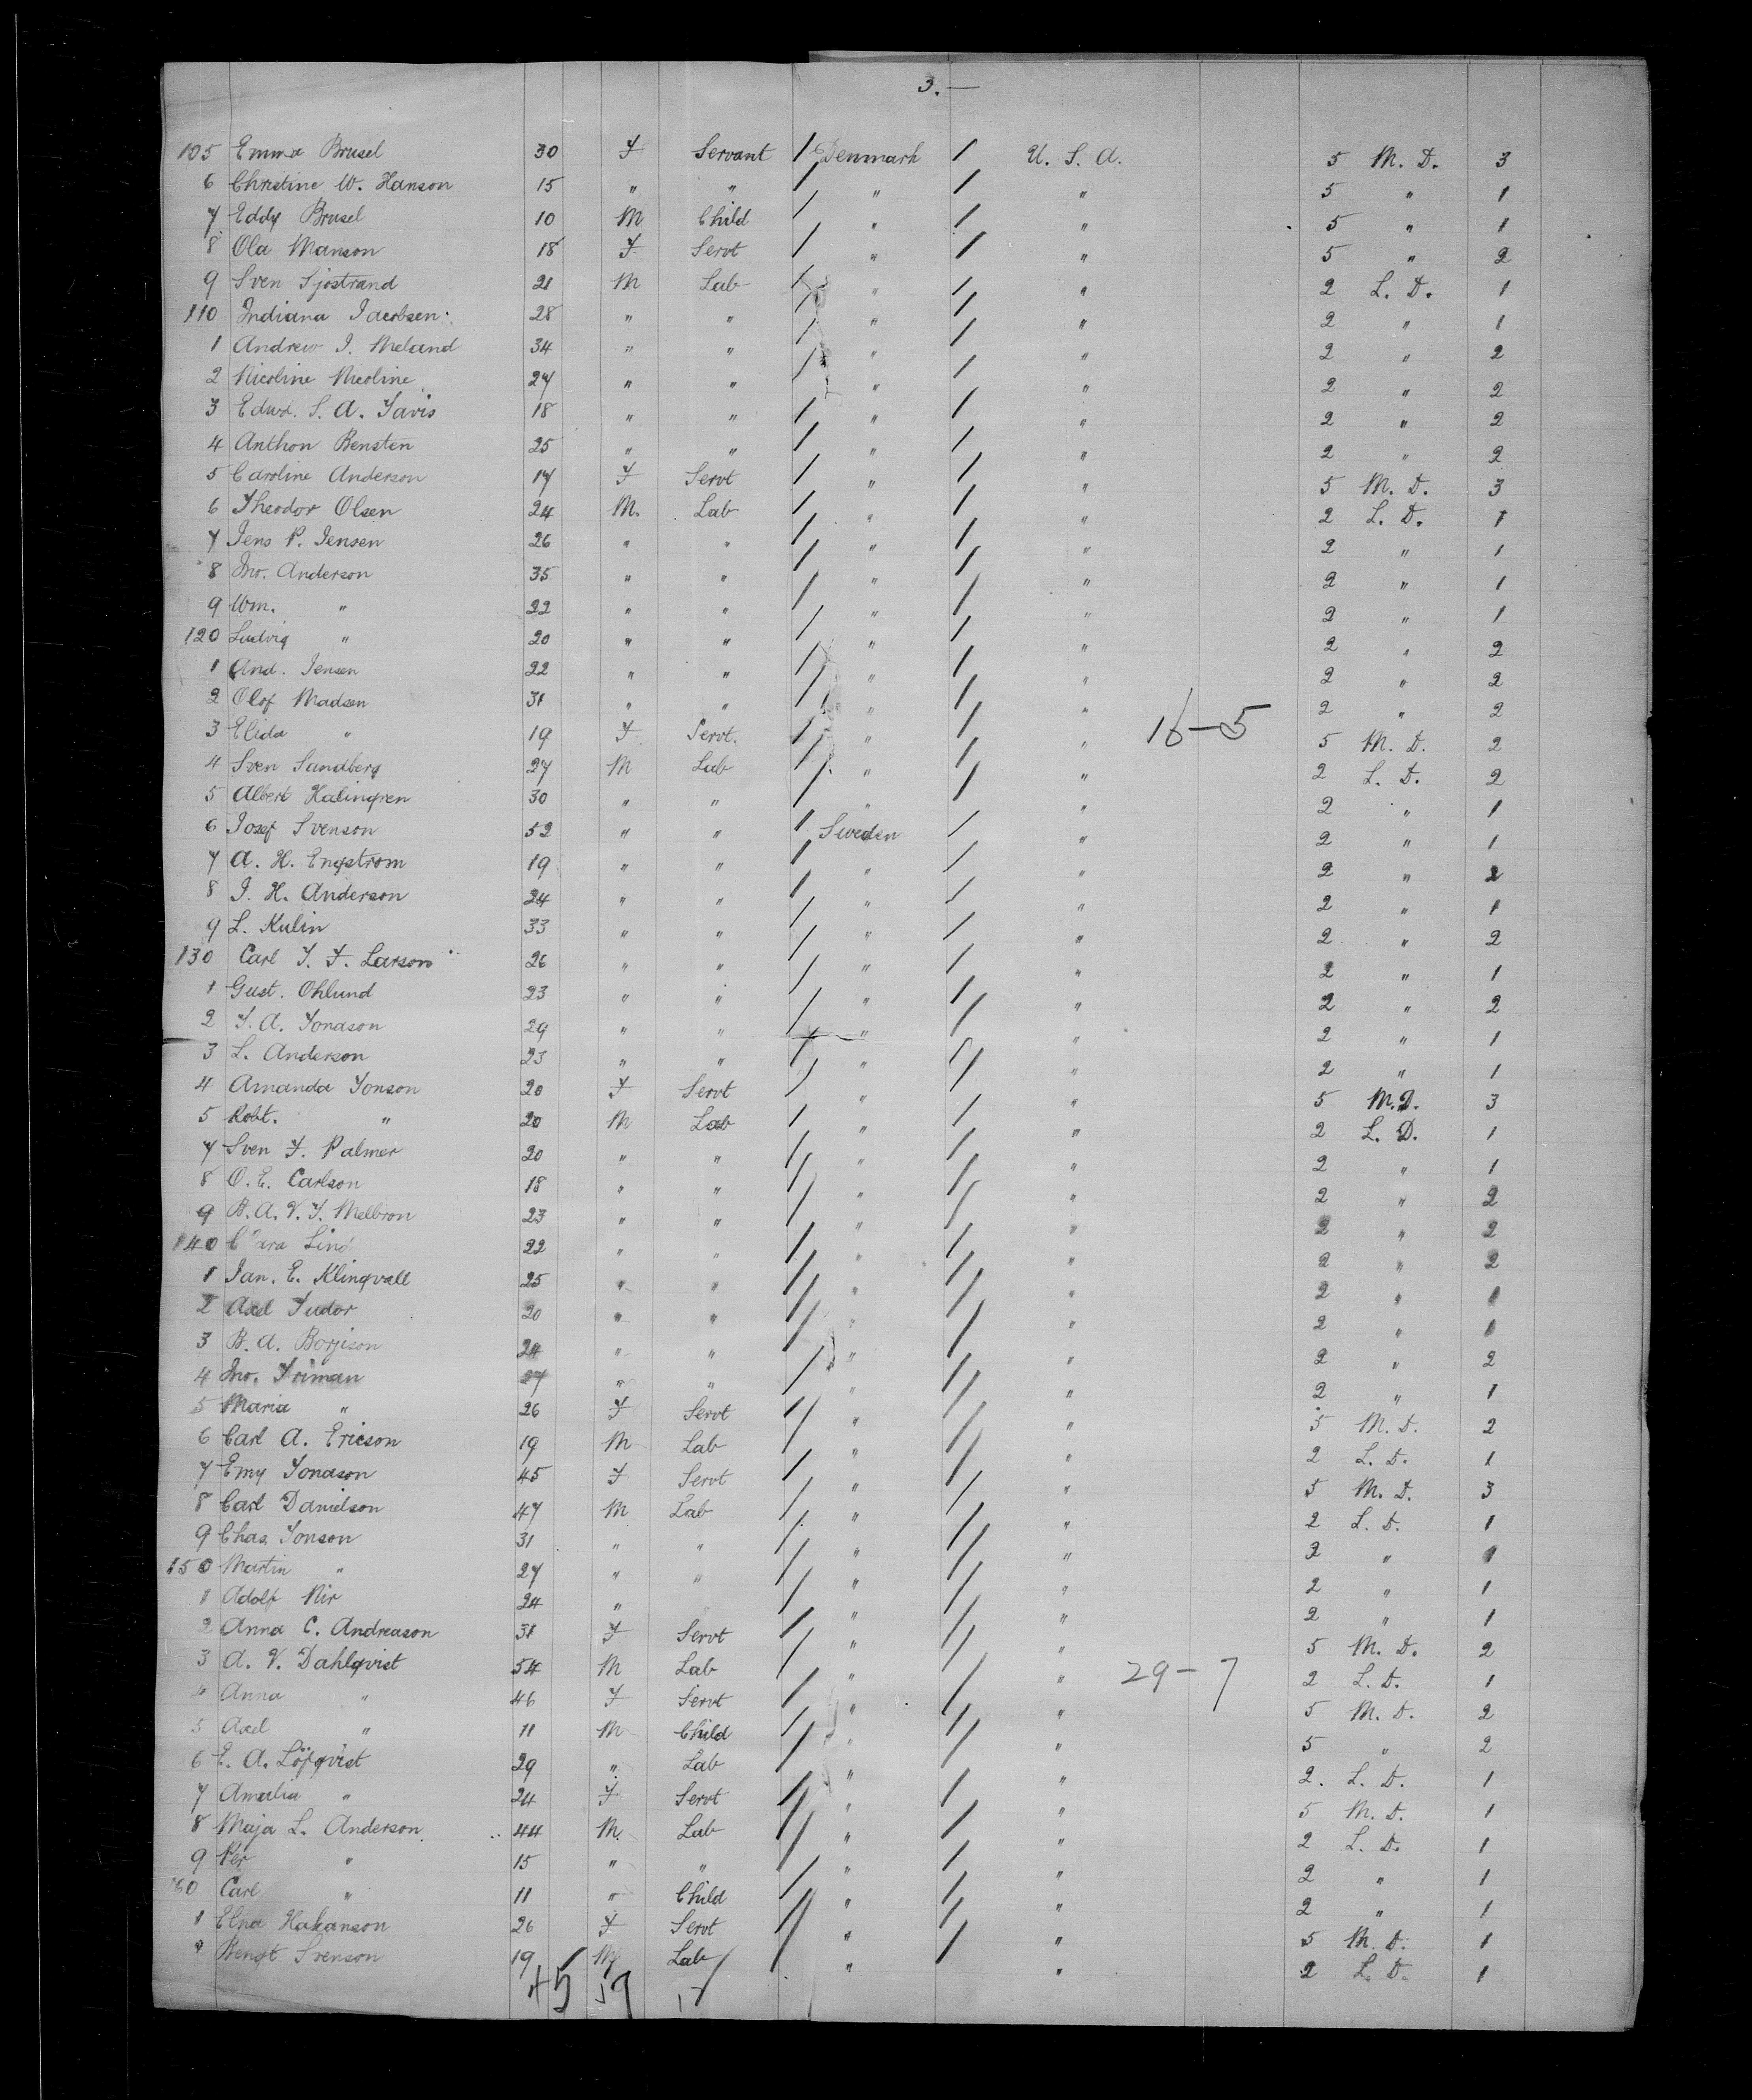 3.—
105 Emma Brusel 30 F Servant / Denmark / U. S. A. 5 M. D. 3
6 Christine W. Hanson 15 " " / " / " 5 " 1
7 Eddy Brusel 10 M Child / " / " 5 " 1
8 Ola Manson 18 F Servt / " / " 5 " 2
9 Sven Sjostrand 21 M Lab / " / " 2 L. D. 1
110 Indiana Jacobsen 28 " " / " / " 2 " 1
1 Andrew J. Meland 34 " " / " / " 2 " 2
2 Nicoline Nicoline 27 " " / " / " 2 " 2
3 Edwd. S. A. 18 " " / " / " 2 " 2
4 Anthon Bensten 25 " " / " / " 2 " 2
5 Caroline Anderson 17 F Servt / " / " 5 M. D. 3
6 Theodor Olsen 24 M. Lab / " / " 2 L. D. 1
7 Jens P. Jensen 26 " " / " / " 2 " 1
8 Jno. Anderson 35 " " / " / " 2 " 1
9 Wm. " 22 " " / " / " 2 " 1
120 Ludvig " 20 " " / " / " 2 " 2
1 And. Jensen 22 " " / " / " 2 " 2
2 Olof Madsen 31 " " / " / " 2 " 2
3 Elida " 19 F Servt. / " / " 16-5 5 M. D. 2
4 Sven Sandberg 27 M Lab / " / " 2 L. D. 2
5 Albert Halingren 30 " " / " / " 2 " 1
6 Josef Svenson 52 " " / Sweden / " 2 " 1
7 A. H. Engstrom 19 " " / " / " 2 " 2
8 J. H. Anderson 24 " " / " / " 2 " 1
9 L. Kulin 33 " " / " / " 2 " 2
130 Carl J. F. Larson 26 " " / " / " 2 " 1
1 Gust. Ohlund 23 " " / " / " 2 " 2
2 J. A. Jonason 29 " " / " / " 2 " 1
3 L. Anderson 23 " " / " / " 2 " 1
4 Amanda Jonson 20 F Servt / " / " 5 M.D. 3
5 Robt. " 20 M Lab / " / " 2 L. D. 1
7 Sven F. Palmer 20 " " / " / " 2 " 1
8 O. E. Carlson 18 " " / " / " 2 " 2
9 B. A. V. J. Melbron 23 " " / " / " 2 " 2
140 Clara Lind 22 " " / " / " 2 " 2
1 Jan. E. Klingvall 25 " " / " / " 2 " 1
2 Axel Tudor 20 " " / " / " 2 " 1
3 B. A. Borjison 24 " " / " / " 2 " 2
4 Jno. Friman 27 " " / " / " 2 " 1
5 Maria " 26 F Servt / " / " 5 M. D. 2
6 Carl A. Ericson 19 M Lab / " / " 2 L. D. 1
7 Emy Jonason 45 F Servt / " / " 5 M. D. 3
8 Carl Danielson 47 M Lab / " / " 2 L. D. 1
9 Chas. Jonson 31 " " / " / " 2 " 1
150 Martin " 27 " " / " / " 2 " 1
1 Adolf Nir 24 " / " / " 2 " 1
2 Anna C. Andreason 31 F Servt / " / " 5 M. D. 2
3 A. V. Dahlqvist 54 M Lab / " / " 29-7 2 L. D. 1
4 Anna " 46 F Servt / " / " 5 M. D. 2
5 Axel " 11 M Child / " / " 5 " 2
6 E. A. Löfqvist 29 " Lab / " / " 2. L. D. 1
7 Amalia " 24 F Servt / " / " 5 M. D. 1
8 Maja L. Anderson 44 M. Lab / " / " 2 L. D. 1
9 Per " 15 " " / " / " 2 " 1
160 Carl " 11 " Child / " / " 2 " 1
1 Elna Hakanson 26 F Servt / " / " 5 M. D. 1
2 Bengt Svenson 19 M Lab / " / " 2 L. D. 1
45 57 12